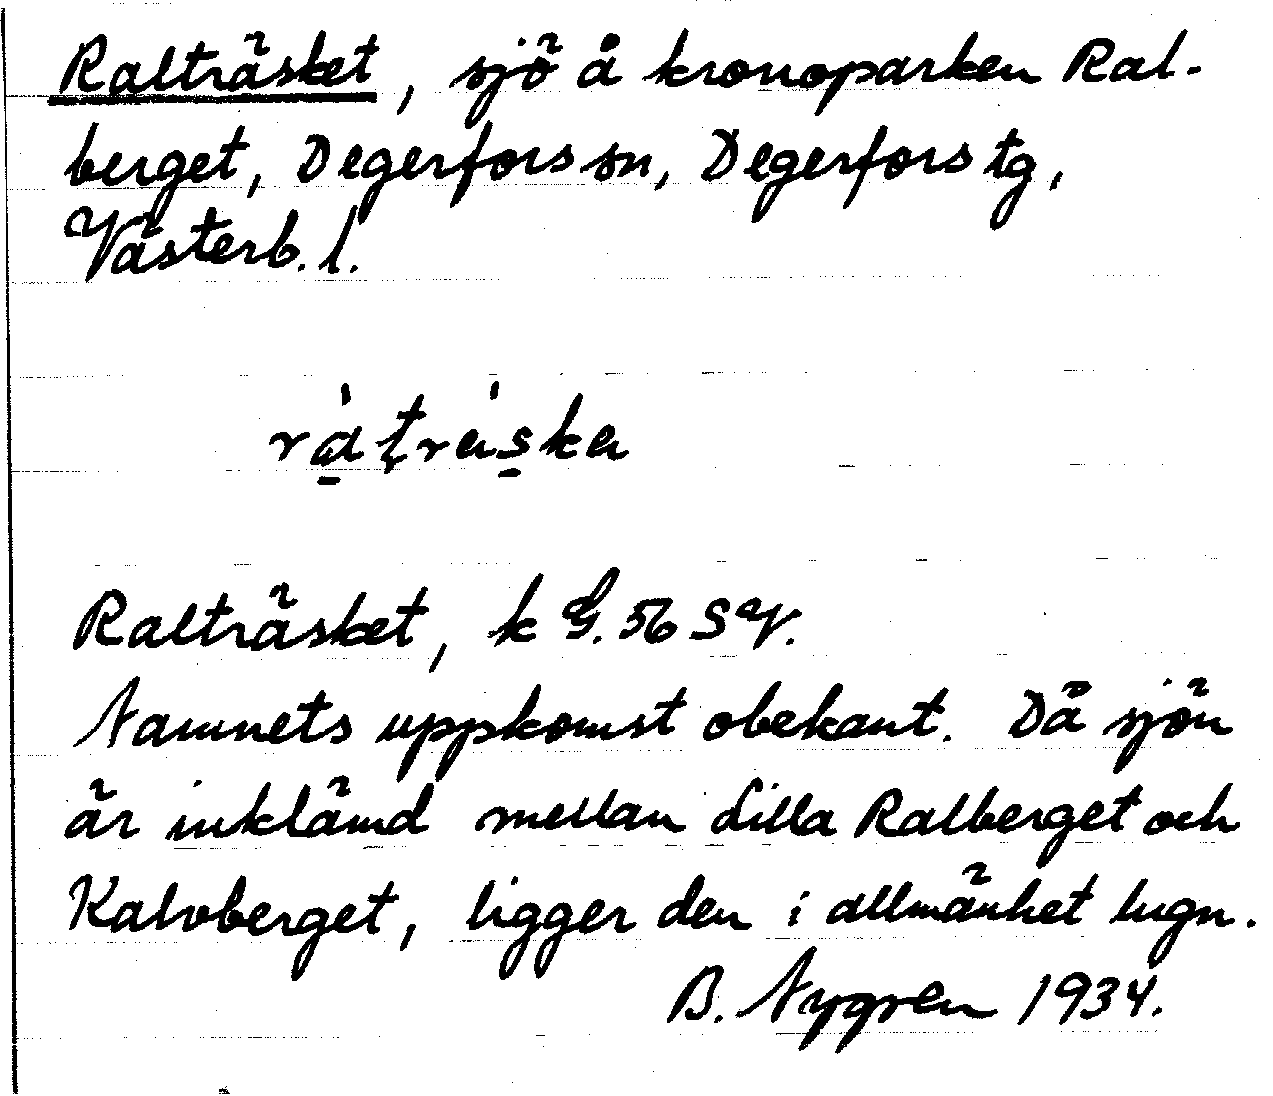 Ralträsket, sjö å kronoparken Ral-
berget, Degerfors sn, Degerfors tg,
Västerb. l.
Ralträsket, k G. 56 SV.
Namnets uppkomst obekant. Då sjön
är inklämd mellan Lilla Ralberget och
Kalvberget, ligger den i allmänhet lugn.
B. Nygren 1934.